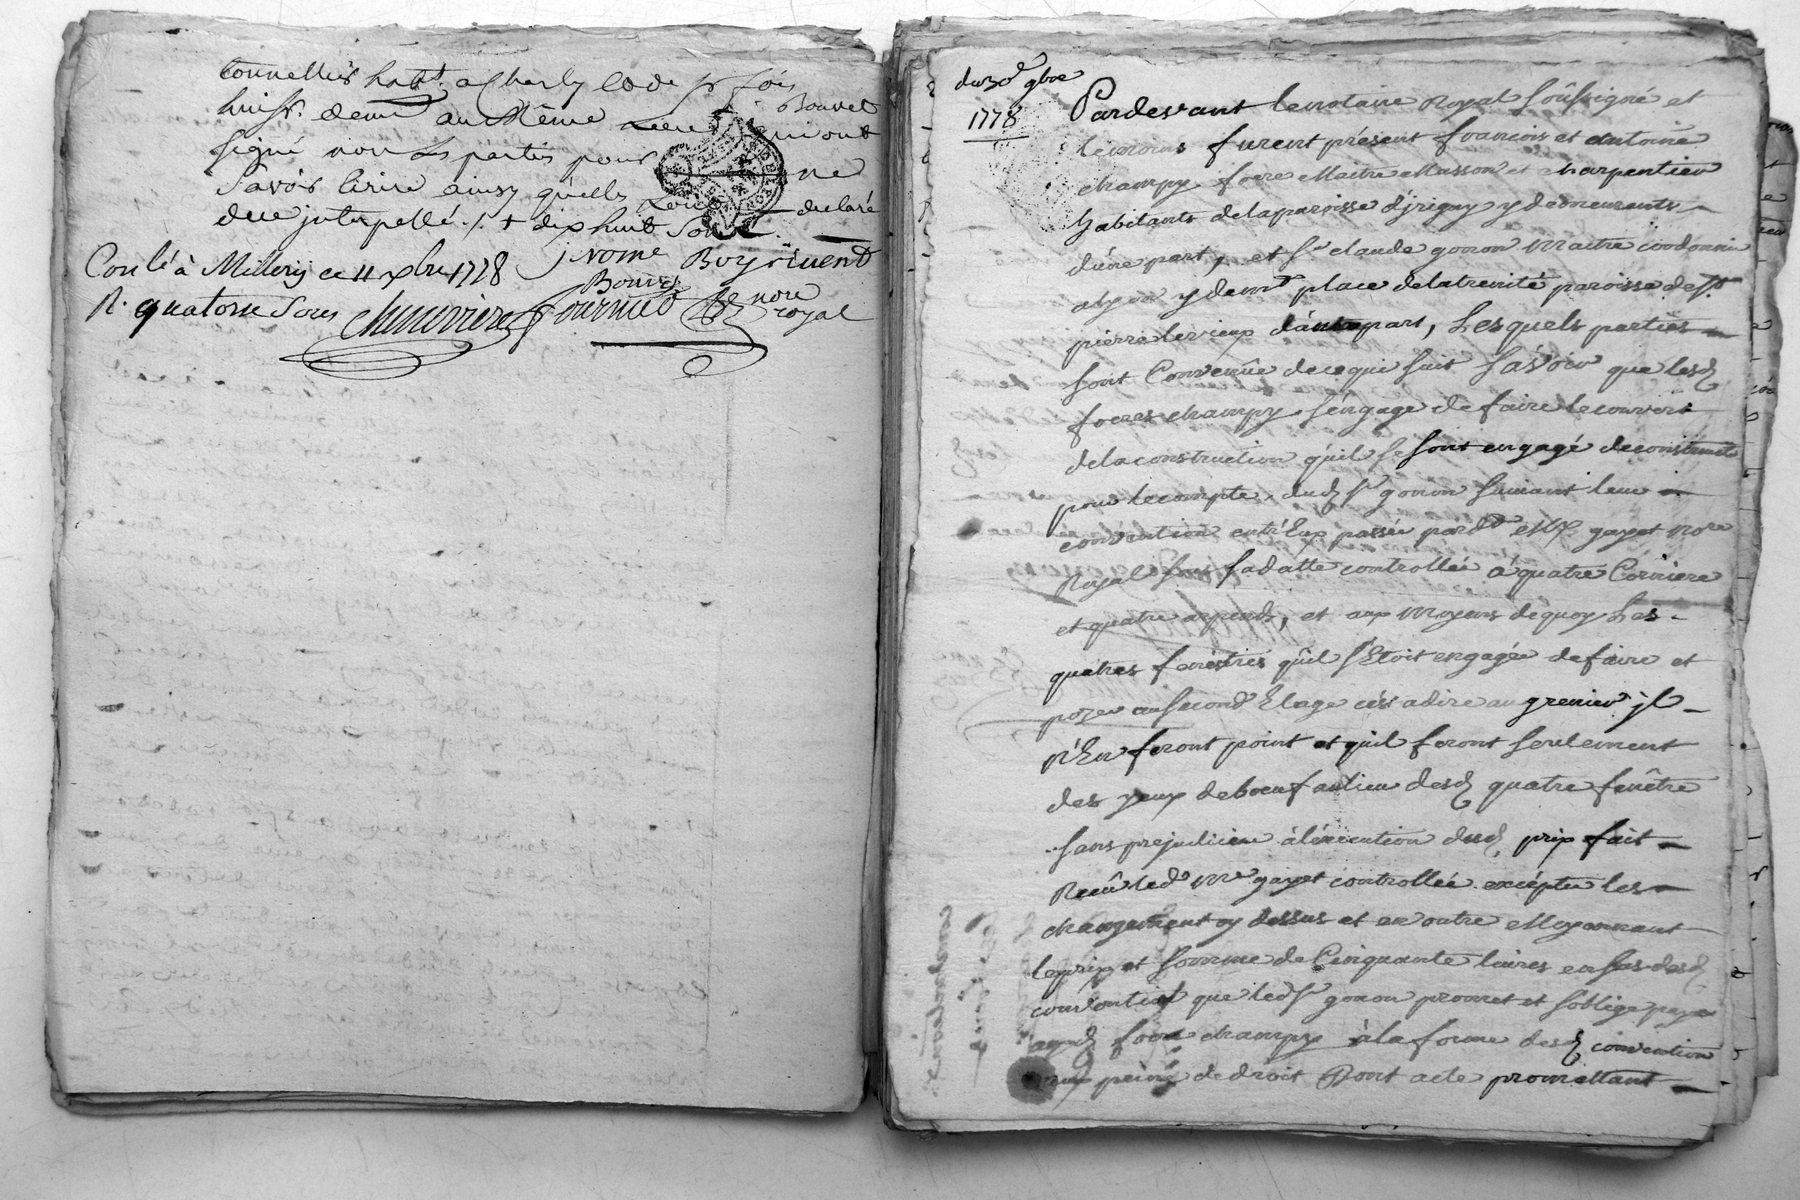 tonnellier habt. a Charly et de Sr
huisr. demt. au Même Lieu
Bouvet
qui ont
signé non les parties pour ne
savoir Ecrire ainsy qu'elles declaré
de ce interpellé ./. + dix huit sous
Conlé à Millery ce 11 xbre 1778
j rome Boyrivent
Bouvet
R. quatorze Sous Chenevriere fournier
nore
royal
du 30e 9bre
1778
Pardevant le notaire Royal soussigné et
temoins furent présent francois et antoine
champy frere Maitre Masson et charpentier
habitants de la paroisse d'jrigny y demeurants
d'une part, et Sr claude gonon Maitre cordonnier
a lyon y demt. place de la trenité paroisse de St
pierre le vieux d'autre part, Lesquels parties
sont Convenûe de ce qui suit Sávoir que lesd
freres champy sengage de faire le couvert
de la construction quil se sont engagé de construire
pour le compte dud Sr gonon suivant leur
convention entr'Eux passée pard. et Me gayet nore
Royal sous sa datte controllée a quatre Corniere
et quatre arpends, et aux moyens de quoy Les
quatres fenestres quil s'Etoit engagée de faire et
pozer au second Etage cés a dire au grenier jl
n'En feront point et quil feront seulement
des yeux de boeuf au lieu desd quatre fenêtre
sans prejudicier a l'éxecution dud prix fait
Recû led Me gayet controllée excéptée les
changement cy dessus et en outre Moyennant
le prix et somme de Cinquante livres en sus desd
convention que led Sr gonon promet et soblige payer
auxd frere champy à la forme desd convention
aux peine de droit Dont acte promettant